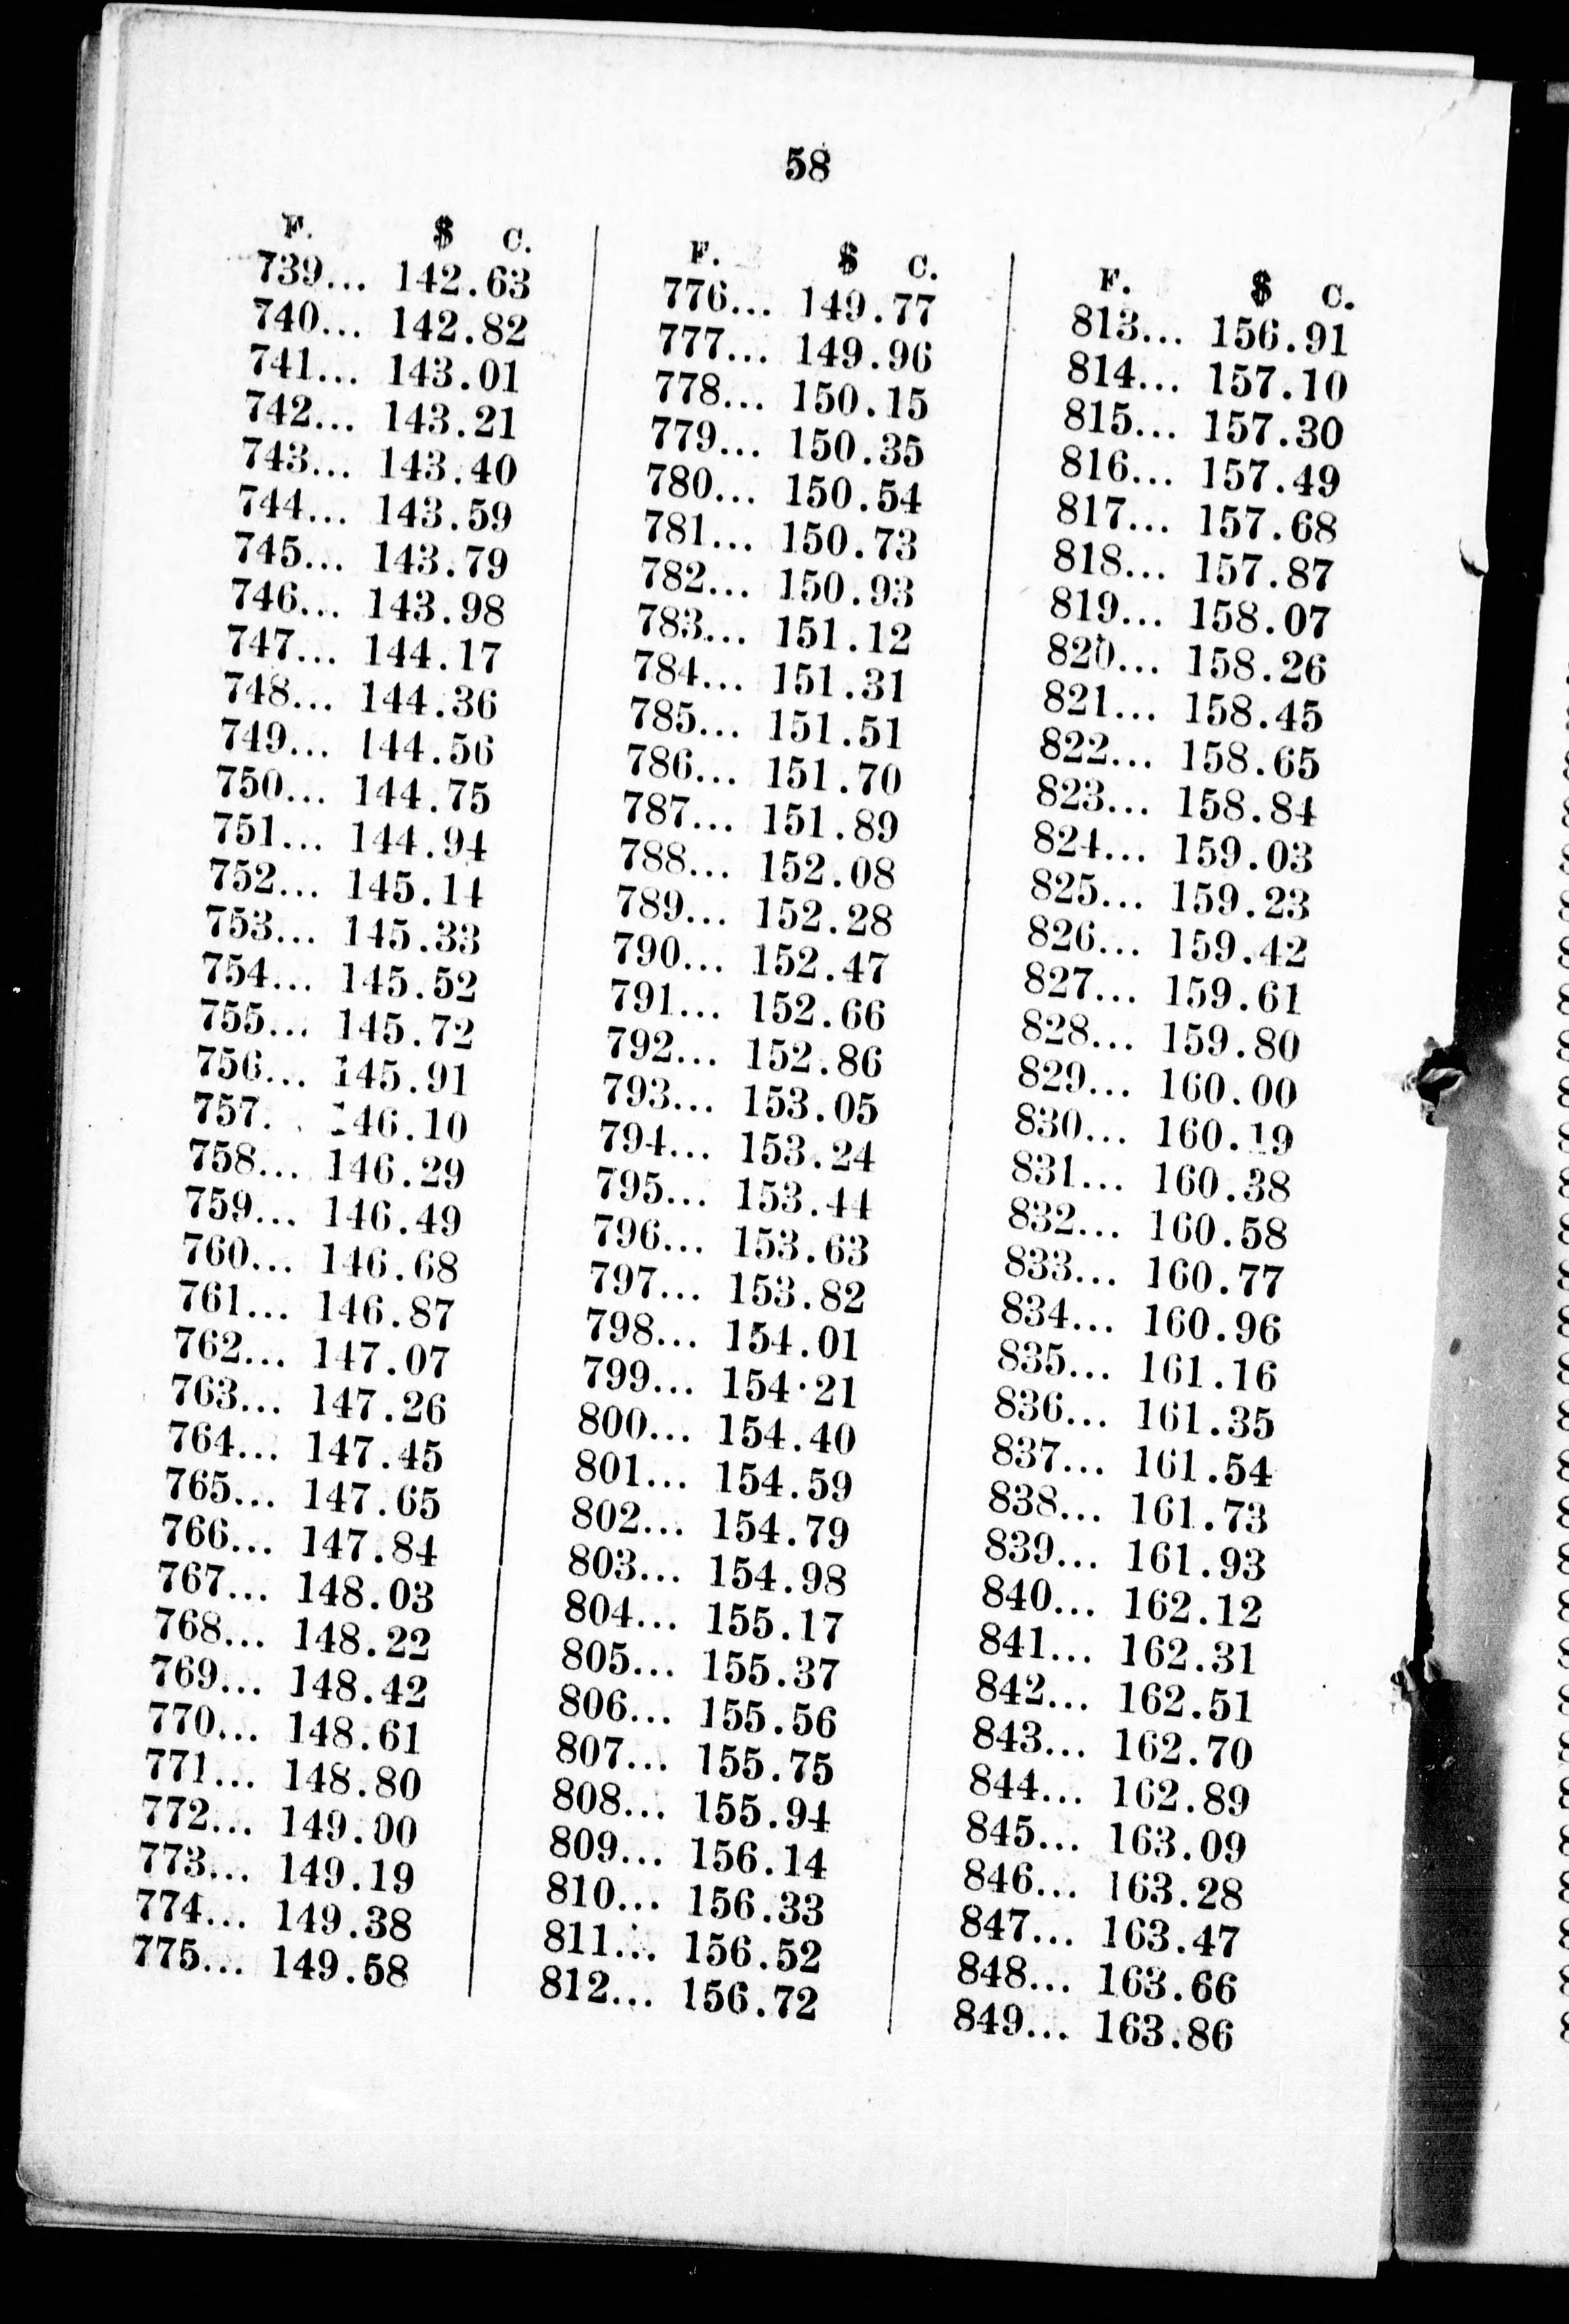 58
F. $ C.
739... 142.63
740... 142.82
741... 143.01
742... 143.21
743... 143.40
744... 143.59
745... 143.79
746... 143.98
747... 144.17
748... 144.36
749... 144.56
750... 144.75
751... 144.94
752... 145.14
753... 145.33
754... 145.52
755... 145.72
756... 145.91
757. . 146.10
758... 146.29
759... 146.49
760... 146.68
761... 146.87
762... 147.07
763... 147.26
764... 147.45
765... 147.65
766... 147.84
767... 148.03
768... 148.22
769... 148.42
770... 148.61
771... 148.80
772... 149.00
773... 149.19
774... 149.38
775... 149.58
F. $ C.
776... 149.77
777... 149.96
778... 150.15
779... 150.35
780... 150.54
781... 150.73
782... 150.93
783... 151.12
784... 151.31
785... 151.51
786... 151.70
787... 151.89
788... 152.08
789... 152.28
790... 152.47
791... 152.66
792... 152.86
793... 153.05
794... 153.24
795... 153.44
796... 153.63
797... 153.82
798... 154.01
799... 154·21
800... 154.40
801... 154.59
802... 154.79
803... 154.98
804... 155.17
805... 155.37
806... 155.56
807... 155.75
808... 155.94
809... 156.14
810... 156.33
811... 156.52
812... 156.72
F. $ C.
813... 156.91
814... 157.10
815... 157.30
816... 157.49
817... 157.68
818... 157.87
819... 158.07
820... 158.26
821... 158.45
822... 158.65
823... 158.84
824... 159.03
825... 159.23
826... 159.42
827... 159.61
828... 159.80
829... 160.00
830... 160.19
831... 160.38
832... 160.58
833... 160.77
834... 160.96
835... 161.16
836... 161.35
837... 161.54
838... 161.73
839... 161.93
840... 162.12
841... 162.31
842... 162.51
843... 162.70
844... 162.89
845... 163.09
846... 163.28
847... 163.47
848... 163.66
849... 163.86